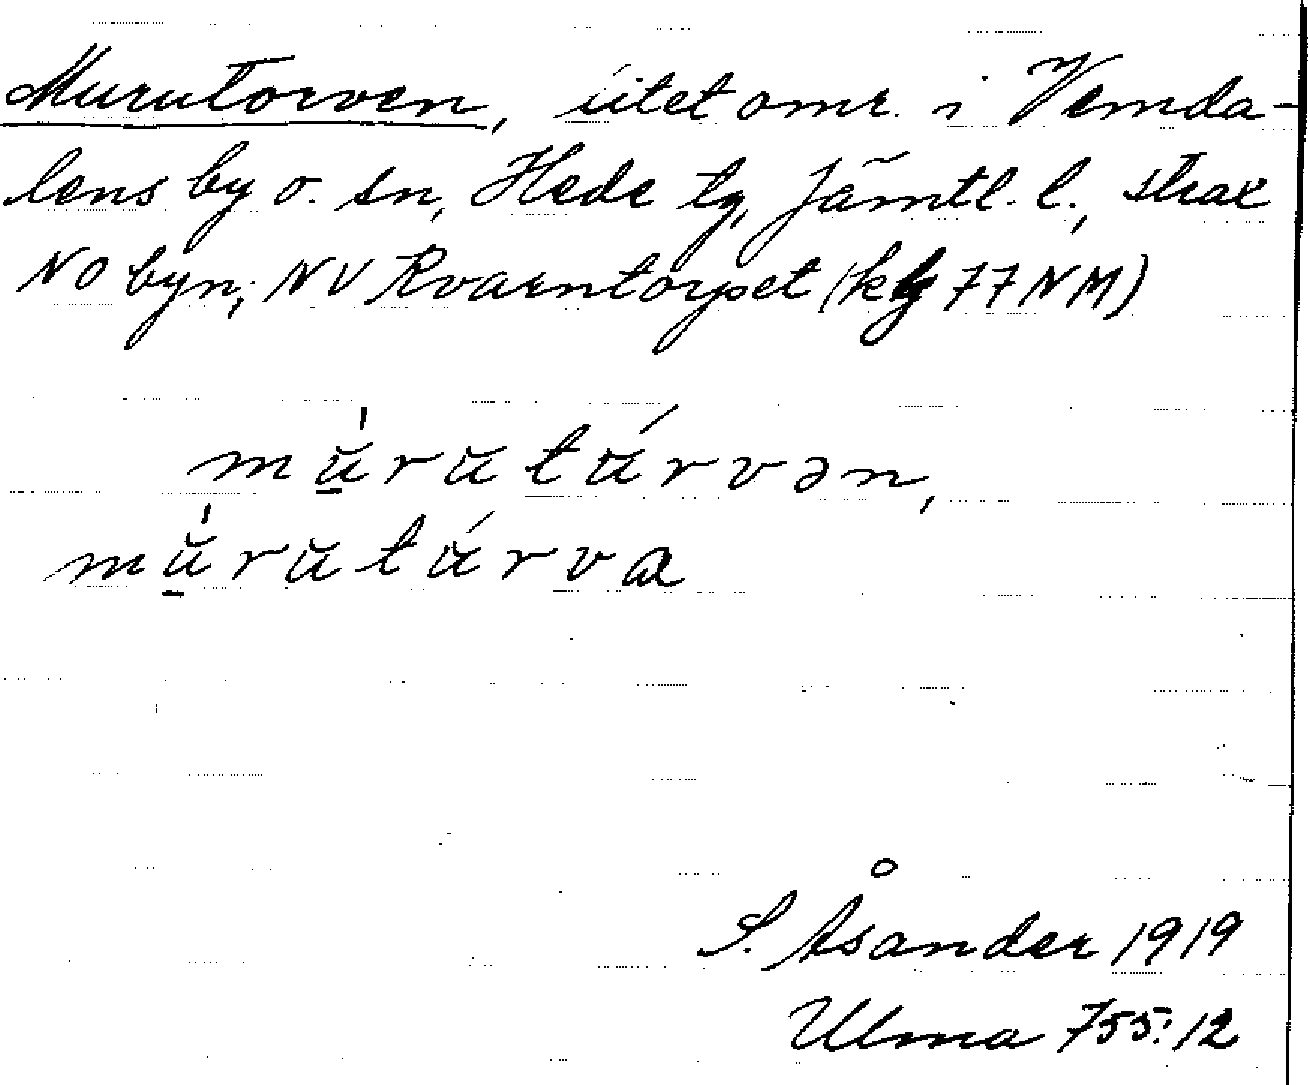 Murutorven, litet omr. i Vemda-
lens by o. sn, Hede tg, Jämtl. l., strax
NO byn; NV Kvarntorpet (kbl 77 NM)
mu̍rŭtúrvən,
mu̍rŭtúrva
S. Åsander 1919
Ulma 755:12